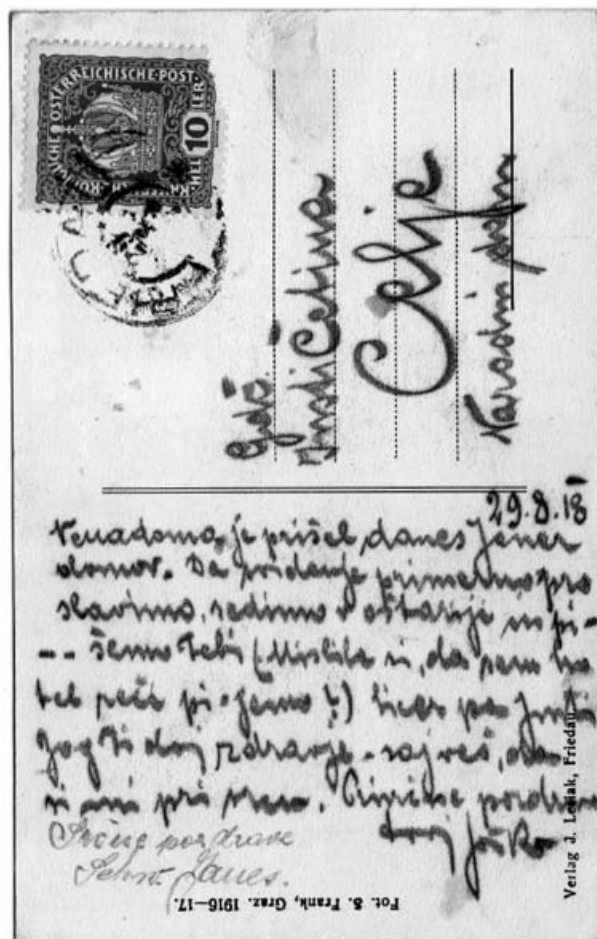 KAISERLICHE KÖNIGLICHE ÖSTERREICHISCHE POST
10
HELLER
Gdč.
Justi Cetina
Celje
Narodni dom
29.8.18
Nenadoma je prišel danes Janez
domov. Da svidenje primerno pro
slavimo, sedimo v oštarije in pi-
-- šemo Tebi (Mislila si, da sem ho
tel reči pi-jemo?)
Bog Ti daj zdravje - saj veš, da
si mi pri srcu. pozdrave
Tvoj Joško
Srčne pozdrave
Janez.
Fot. S. Frank, Graz. 1916—17.
Verlag J. Friedau